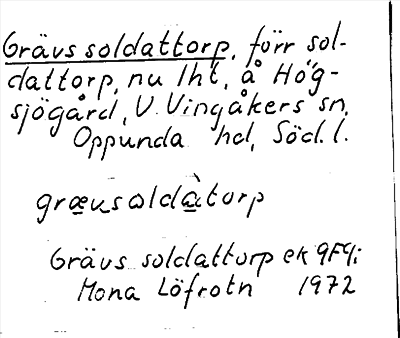 Grävs soldattorp, förr sol-
dattorp, nu lht, å Hög-
sjögård, V. Vingåkers sn,
Oppunda hd, Söd. l.
grævsoldàtorp
Grävs soldattorp ek 9F9i
Mona Löfrotn 1972